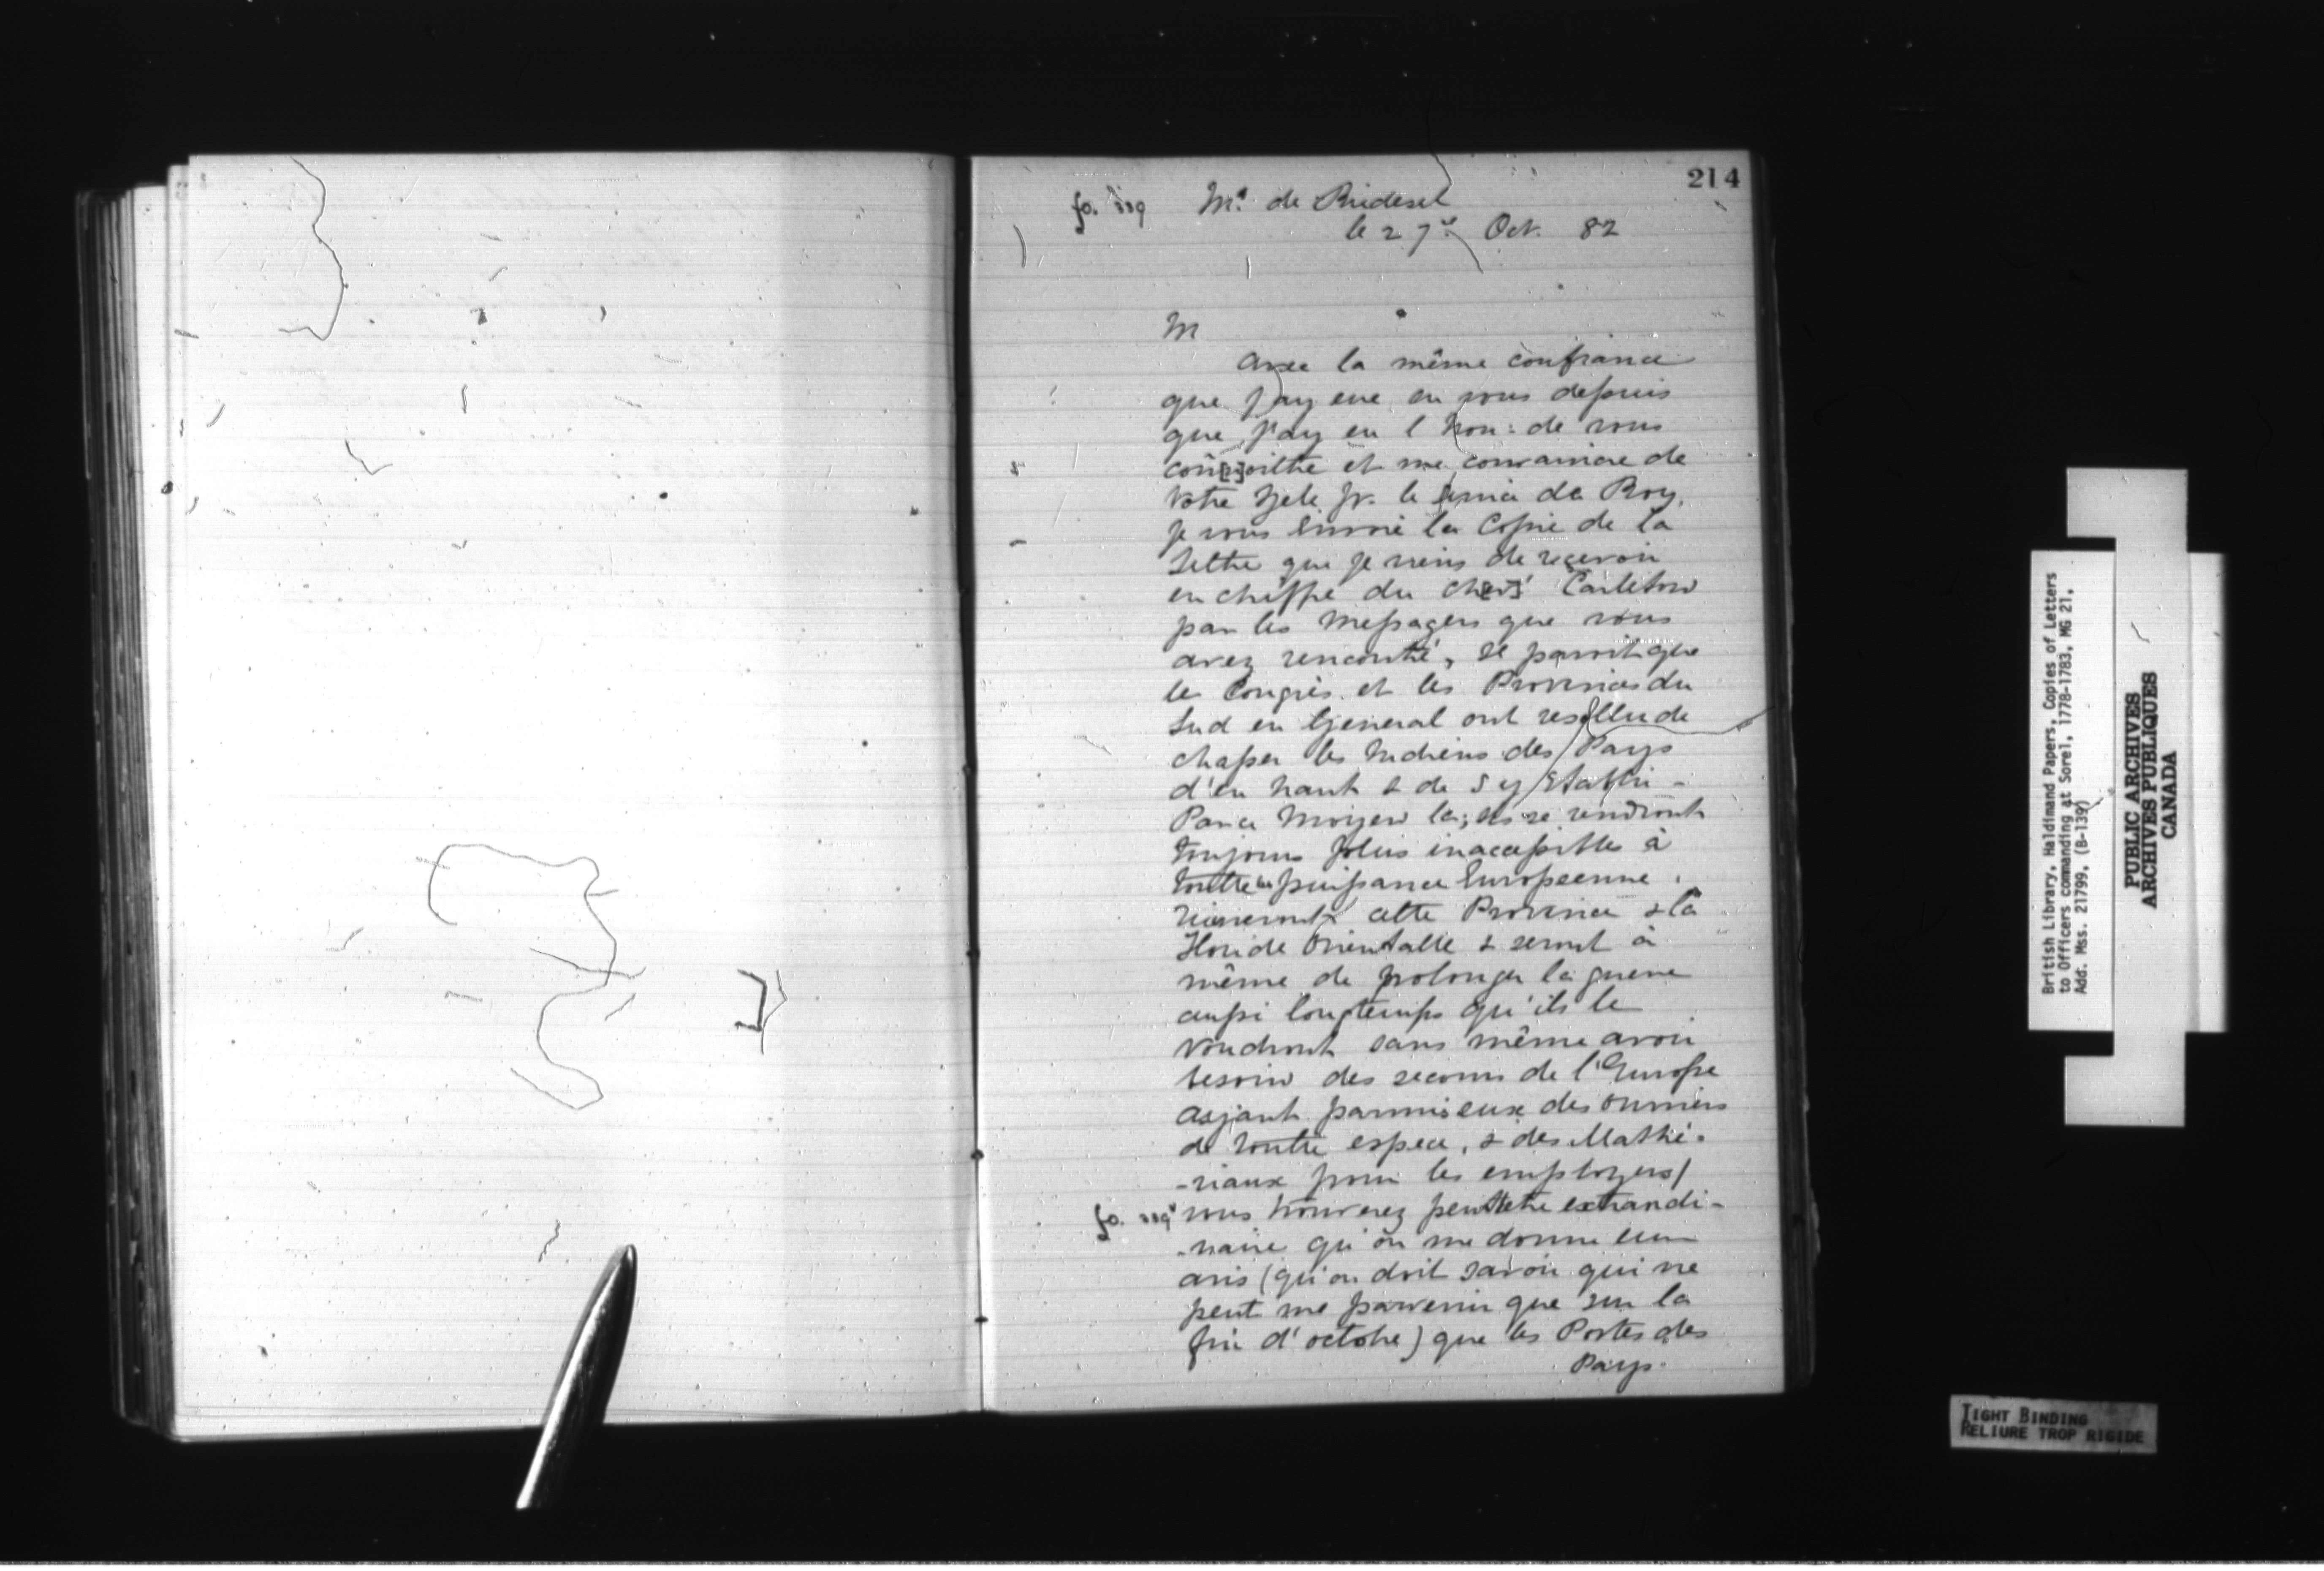 214
fo. 119 Mr. de Riedesel
le 27e Oct. 82
M
avec la même confiance
que j'ay eue en vous depuis
que j'ay eu l'hon: de vous
connoitre et me convaincre de
Votre Zele pr. le service du Roy,
je vous Envoie la Copie de la
Lettre que je viens de recevoir
en chiffre du chevr Carleton
par les Messagers que vous
avez rencontré, Il paroit que
le Congrès et les Provinces du
Sud en General ont resollu de
chasser les Indiens des Pays
d'en haut & de s'y Etablir -
Par ce Moyen la; ils se rendront
toujours plus inaccessibles à
toutte puissance Europeenne,
ruineront cette Province & la
Floride Orientalle & seront à
même de prolonger la guerre
aussi longtemps qu'ils le
voudront sans même avoir
besoin des secours de l'Europe
ayant parmis eux des ouvriers
de toutte espece, & des Mathé-
-riaux pour les employers/
fo. 119v vous trouverez peuttetre extraordi-
-naire qu'on me donne un
avis (qu'on doit savoir qui ne
peut me parvenir que sur la
fin d'octobre) que les Postes des
Pays.
British Library, Haldimand Papers, Copies of Letters
to Officers commanding at Sorel, 1778-1783, MG 21,
Add. Mss. 21799, (B-139)
PUBLIC ARCHIVES
ARCHIVES PUBLIQUES
CANADA
TIGHT BINDING
RELIURE TROP RIGIDE